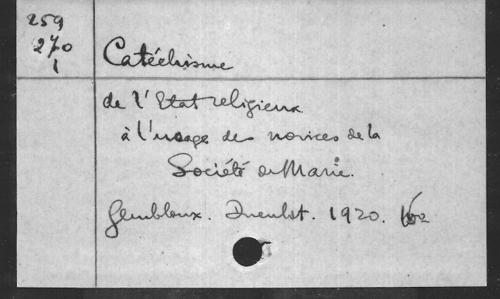 259
270
1
Catéchisme
de l'Etat religieux
à l'usage des novices de la
Société de Marie.
Gembloux. Duculot. 1920.